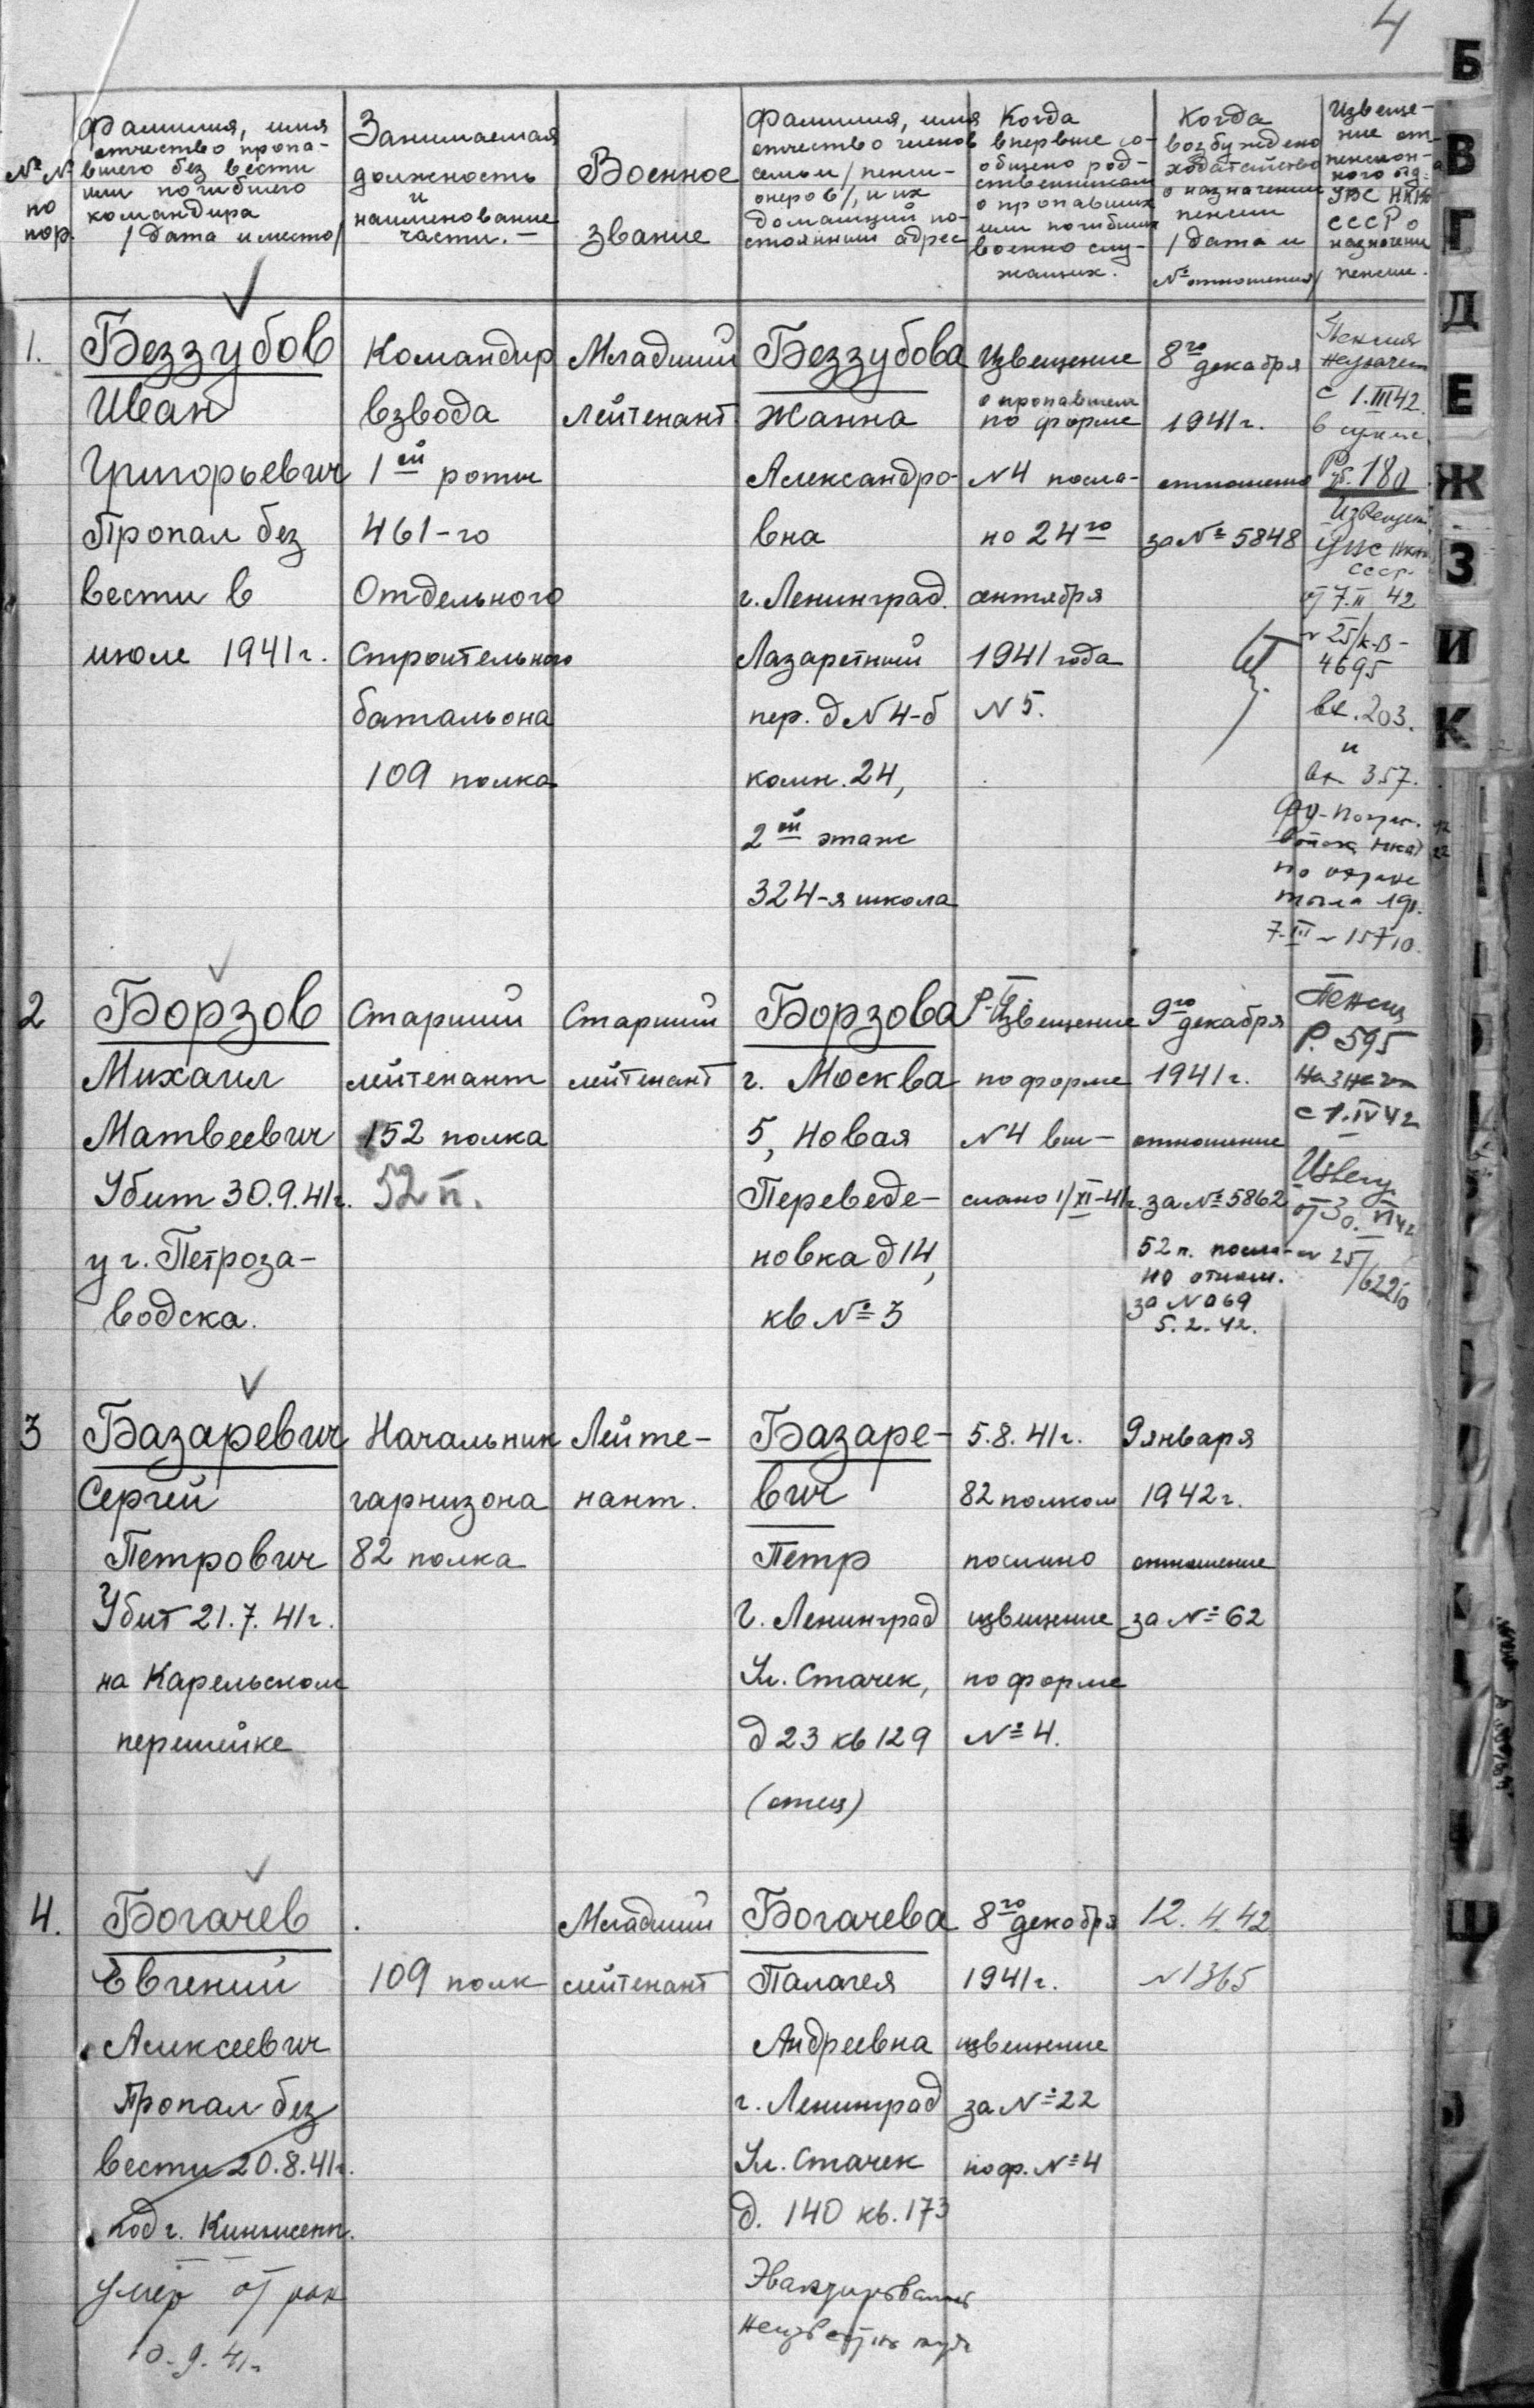 4
№ №
по
пор.
Фамилия, имя
отчество пропа-
вшего без вести
или погибшего
командира
/дата и место/
Занимаемая
должность
и
наименование
части. —
Военное
звание
Фамилия, имя
отчество членов
семьи /пенси-
онеров/, и их
домашний по-
стоянный адрес
Когда
впервые со-
общено род-
ственникам
о пропавших
или погибших
военно слу-
жащих.
Когда
возбуждено
ходатайство
о назначении
пенсии
/дата и
№ отношения/
Извеще-
ние от
пенсион-
ного отд.
СССР о
назначении
пенсии.
1.
Беззубов
Иван
Григорьевич
Пропал без
вести в
июле 1941г.
Командир
взвода
1ой роты
461-го
Отдельного
Строительного
батальона
109 полка
Младший
Лейтенант
Беззубова
Жанна
Александро-
вна
г. Ленинград.
Лазаретный
пер. д N 4-б
комн. 24,
2ой этаж
324-я школа
Извещение
о пропавшем
по форме
N4 посла-
но 24го
сентября
1941 года
N 5.
8го декабря
1941г.
отношение
за № 5848
Пенсия
назначен
с 1.III 42.
в сумме
Руб. 180
Извещен.
СССР.
от 7.II 42
N 25/к-В-
4695
вх. 203.
и
вх 357.
войск НКВД
по охране
тыла
7.III N 15710.
2
Борзов
Михаил
Матвеевич
Убит 30.9.41г.
у г. Петроза-
водска.
Старший
лейтенант
152 полка
52 п.
Старший
лейтенант
Борзова
г. Москва
5, Новая
Переведе-
новка д 14,
кв № 3
Извещение
по форме
N4 вы-
слано 1/XI-41г.
9го декабря
1941г.
отношение
за № 5862
52 п. посла-
но отнош.
за N 069
5.2.42.
Пенсия
Р. 595
назнач
с 1.IV 42
Извещ.
от 30.VI 42
N 25/
62210
3
Базаревич
Сергей
Петрович
Убит 21.7.41г.
на Карельском
перешейке
Начальник
гарнизона
82 полка
Лейте-
нант.
Базаре-
вич
Петр
г. Ленинград
Ул. Стачек,
д 23 кв 129
(отец)
5.8.41г.
82 полком
послано
извещение
по форме
№ 4.
9 января
1942г.
отношение
за № 62
4.
Богачев
Евгений
Алексеевич
Пропал без
вести 20.8.41г.
под г. Кингисепп.
умер от ран
109 полк
Младший
лейтенант
Богачева
Палагея
Андреевна
г. Ленинград
Ул. Стачек
д. 140 кв. 173
Эвакуировалась
неизвестно куда
8го декабря
1941г.
извещение
за № 22
по ф. № 4
12.4.42
N 1365
Б
В
Г
Д
Е
Ж
З
И
К